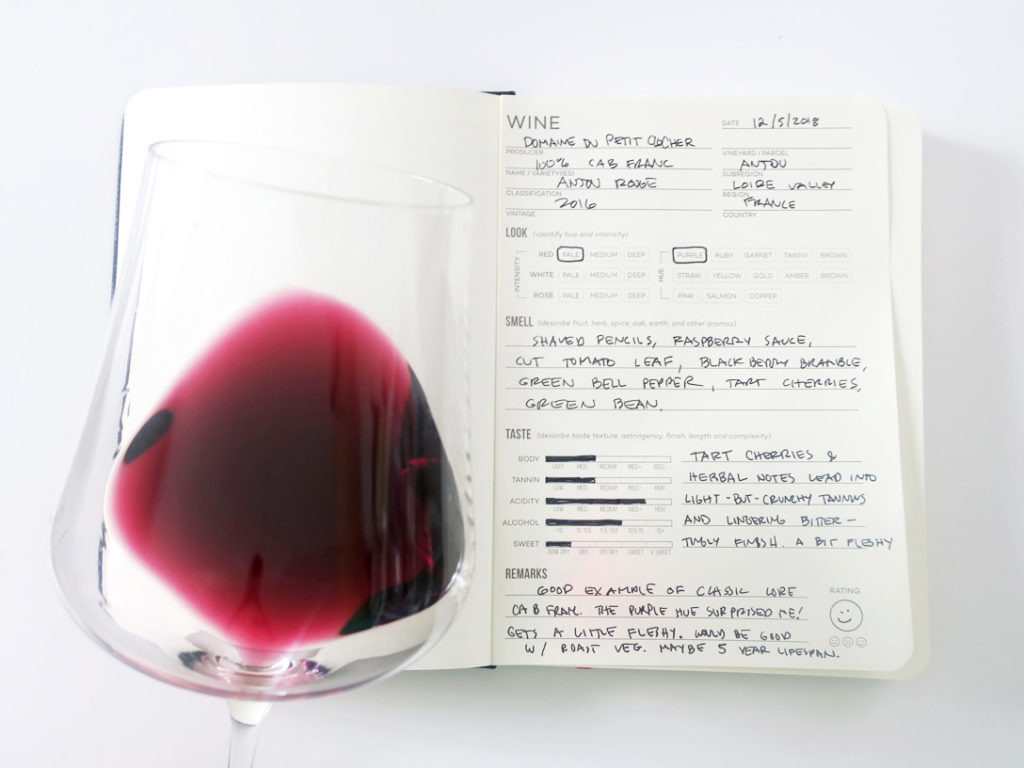 WINE
DATE 12/5/2018
DOMAINE DU PETIT CLOCHER
PRODUCER
VINEYARD / PARCEL
100% CAB FRANC
ANJOU
NAME / VARIETY(IES)
SUBREGION
ANJOU ROUGE
LOIRE VALLEY
CLASSIFICATION
REGION
2016
FRANCE
VINTAGE
COUNTRY
LOOK (identify hue and intensity)
INTENSITY
RED PALE MEDIUM DEEP
HUE
PURPLE RUBY GARNET TAWNY BROWN
WHITE PALE MEDIUM DEEP
STRAW YELLOW GOLD AMBER BROWN
ROSÉ PALE MEDIUM DEEP
PINK SALMON COPPER
SMELL (describe fruit, herb, spice, oak, earth, and other aromas)
SHAVED PENCILS, RASPBERRY SAUCE,
CUT TOMATO LEAF, BLACKBERRY BRAMBLE,
GREEN BELL PEPPER, TART CHERRIES,
GREEN BEAN.
TASTE (describe taste texture, astringency, finish, length and complexity)
BODY
LIGHT MED- MEDIUM MED+ BOLD
TANNIN
LOW MED- MEDIUM MED+ HIGH
ACIDITY
LOW MED- MEDIUM MED+ HIGH
ALCOHOL
SWEET
BONE DRY DRY OFF DRY SWEET V. SWEET
TART CHERRIES &
HERBAL NOTES LEAD INTO
LIGHT-BUT-CRUNCHY TANNINS
AND LINGERING BITTER-
TINGLY FINISH. A BIT FLESHY
REMARKS
GOOD EXAMPLE OF CLASSIC LOIRE
CAB FRANC. THE PURPLE HUE SURPRISED ME!
GETS A LITTLE FLESHY. WOULD BE GOOD
W/ ROAST VEG. MAYBE 5 YEAR LIFESPAN.
RATING